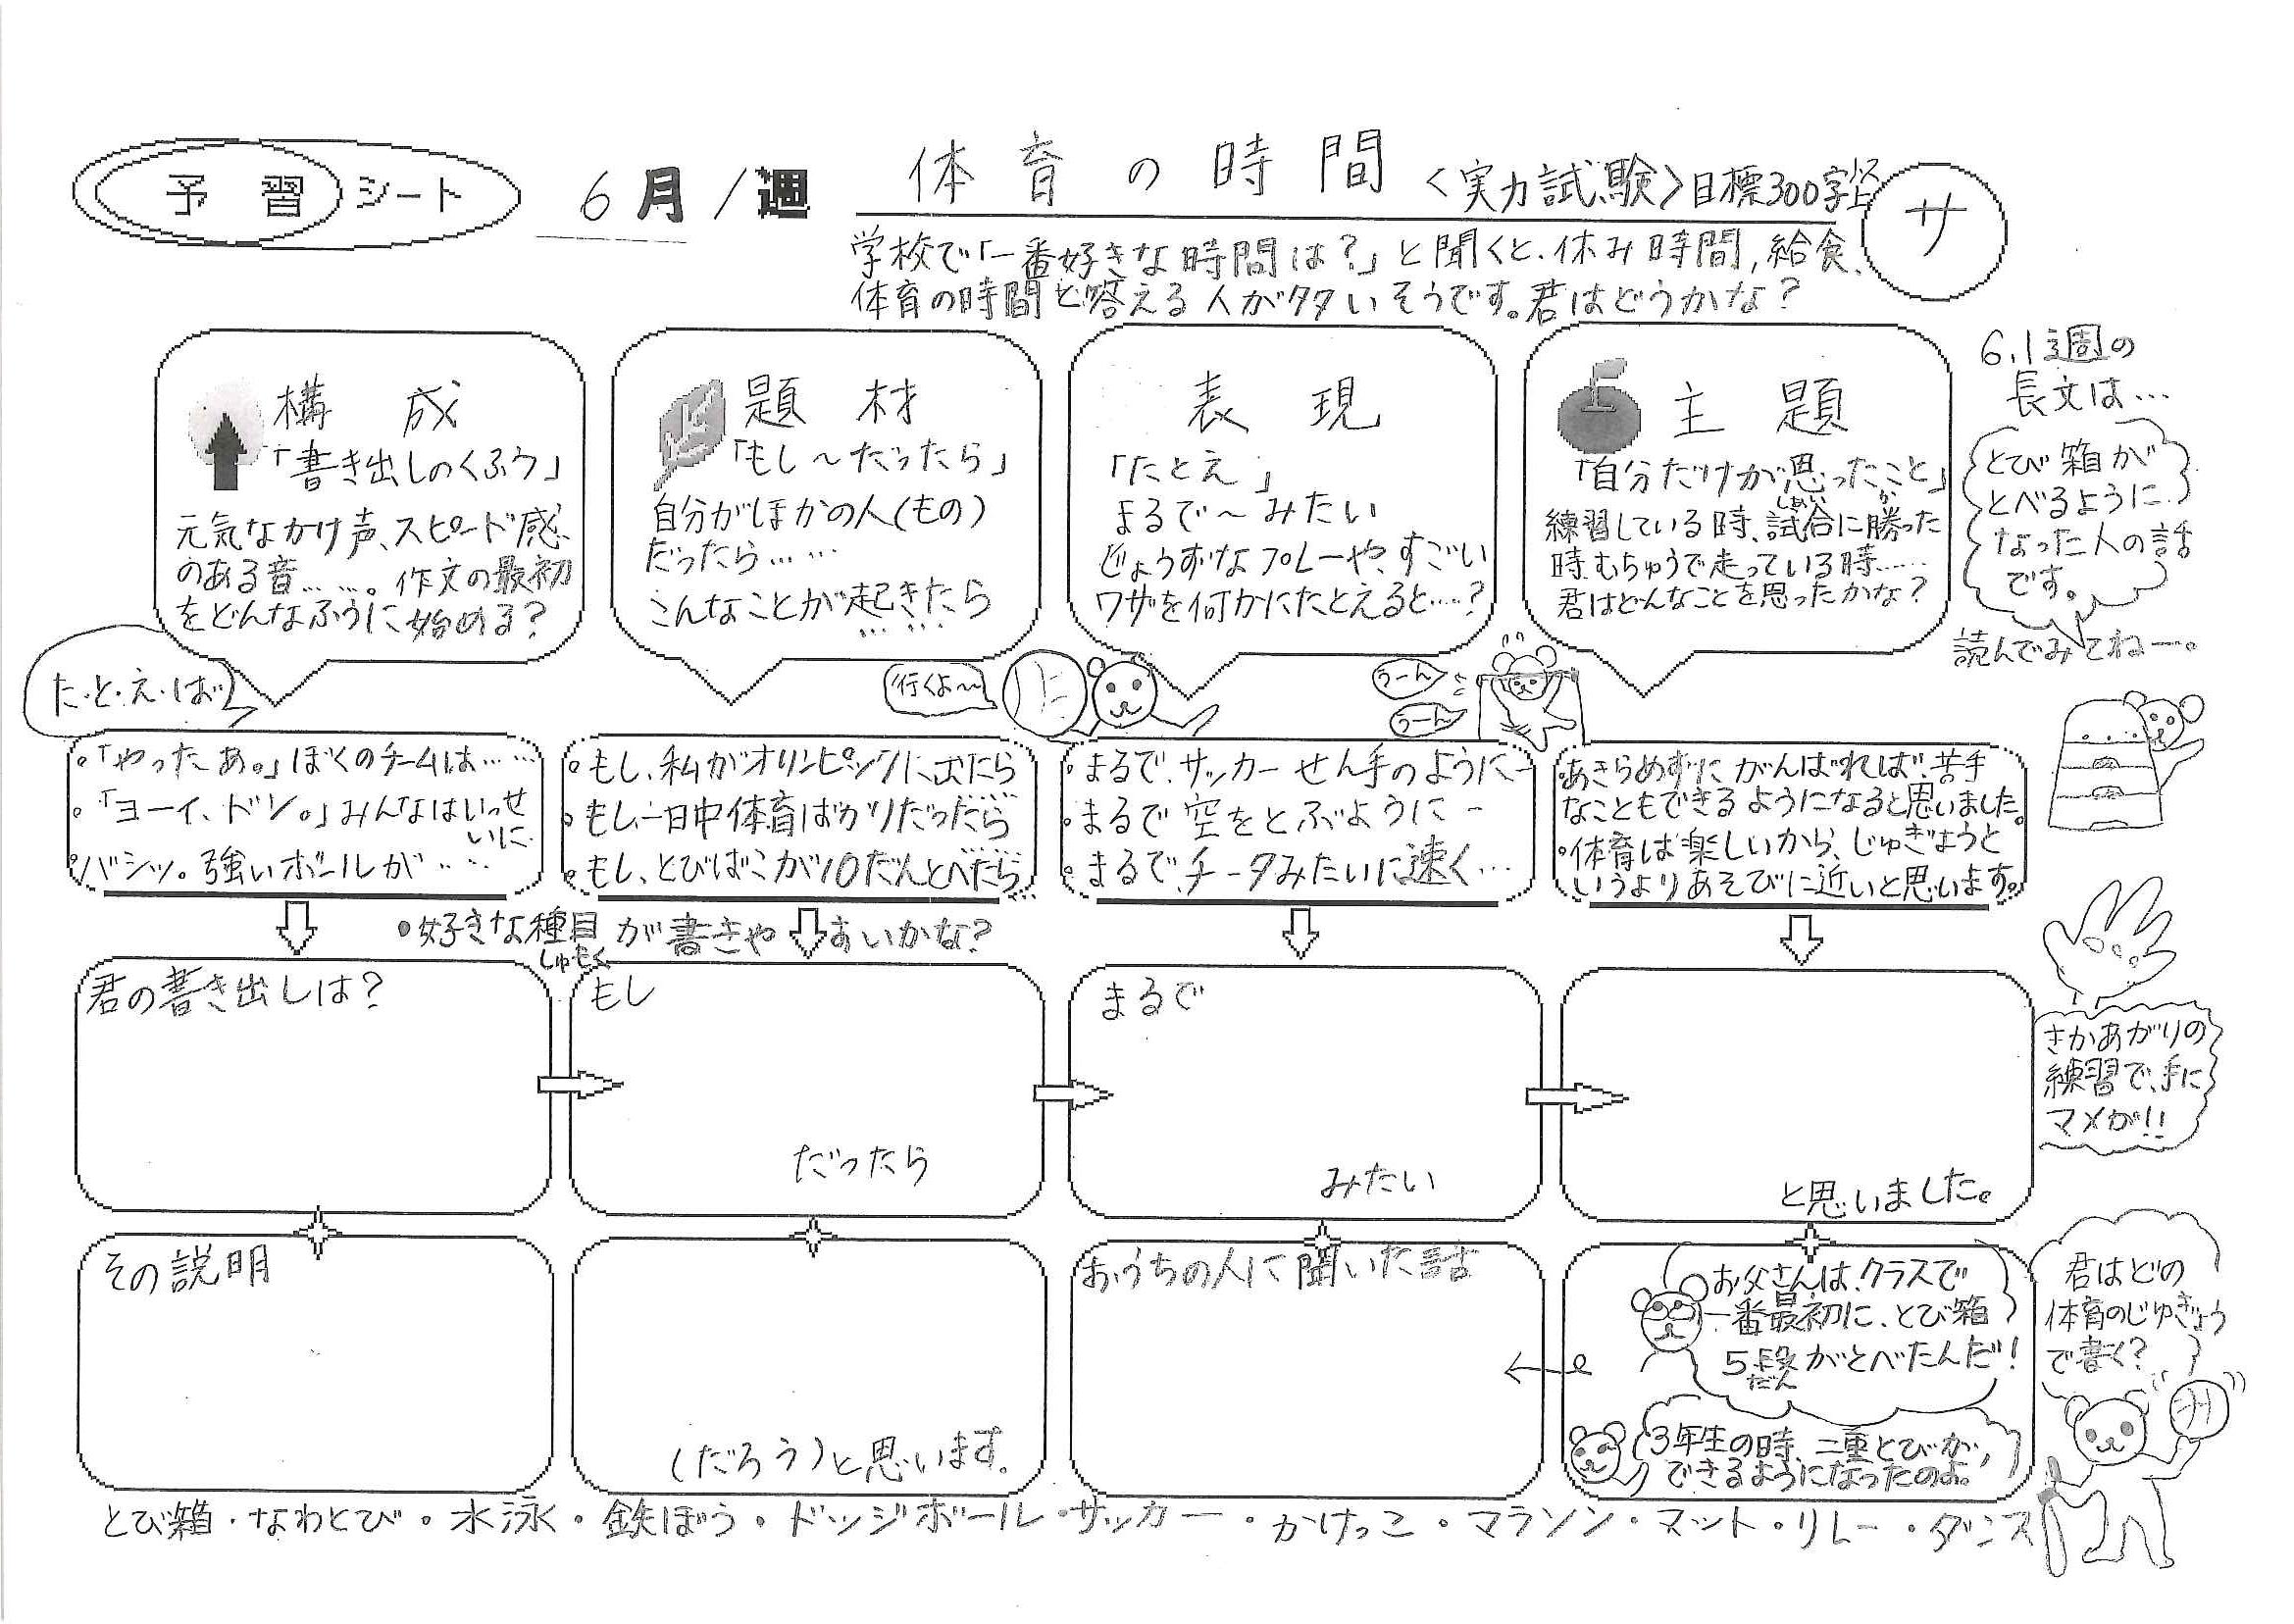 予習シート
6月1週
体育の時間
<実力試験>目標300字以上
サ
学校で「一番好きな時間は?」と聞くと、休み時間,給食、
体育の時間と答える人が多いそうです。君はどうかな?
構成
「書き出しのくふう」
元気なかけ声、スピード感
のある音……。作文の最初
をどんなふうに始める?
題材
「もし~だったら」
自分がほかの人(もの)
だったら……
こんなことが起きたら
……
表現
「たとえ」
まるで~みたい
じょうずなプレーや、すごい
ワザを何かにたとえると…?
主題
「自分だけが思ったこと」
しあい か
練習している時、試合に勝った
時、むちゅうで走っている時……
君はどんなことを思ったかな?
6.1週の
長文は…
とび箱が
とべるように
なった人の話
です。
読んでみてねー。
た・と・え・ば
行くよ~
うーん
うーん
・「やったあ。」ぼくのチームは……
・「ヨーイ、ドン。」みんなはいっせ
いに
・バシッ。強いボールが…
・もし、私がオリンピックに出たら
・もし、一日中体育ばかりだったら
・もし、とびばこが10だんとべたら
・まるで、サッカーせん手のように
・まるで空をとぶように
・まるで、チータみたいに速く…
・あきらめずにがんばれば、苦手
なこともできるようになると思いました。
・体育は楽しいから、じゅぎょうと
いうよりあそびに近いと思います。
・好きな種目が書きやすいかな?
しゅもく
君の書き出しは?
もし
だったら
まるで
みたい
と思いました。
さかあがりの
練習で、手に
マメが!!
その説明
(だろう)と思います。
おうちの人に聞いた話
お父さんは、クラスで
一番最初に、とび箱
5段がとべたんだ!
だん
3年生の時、二重とびが
できるようになったのよ。
君はどの
体育のじゅぎょう
で書く?
とび箱・なわとび・水泳・鉄ぼう・ドッジボール・サッカー・かけっこ・マラソン・マット・リレー・ダンス